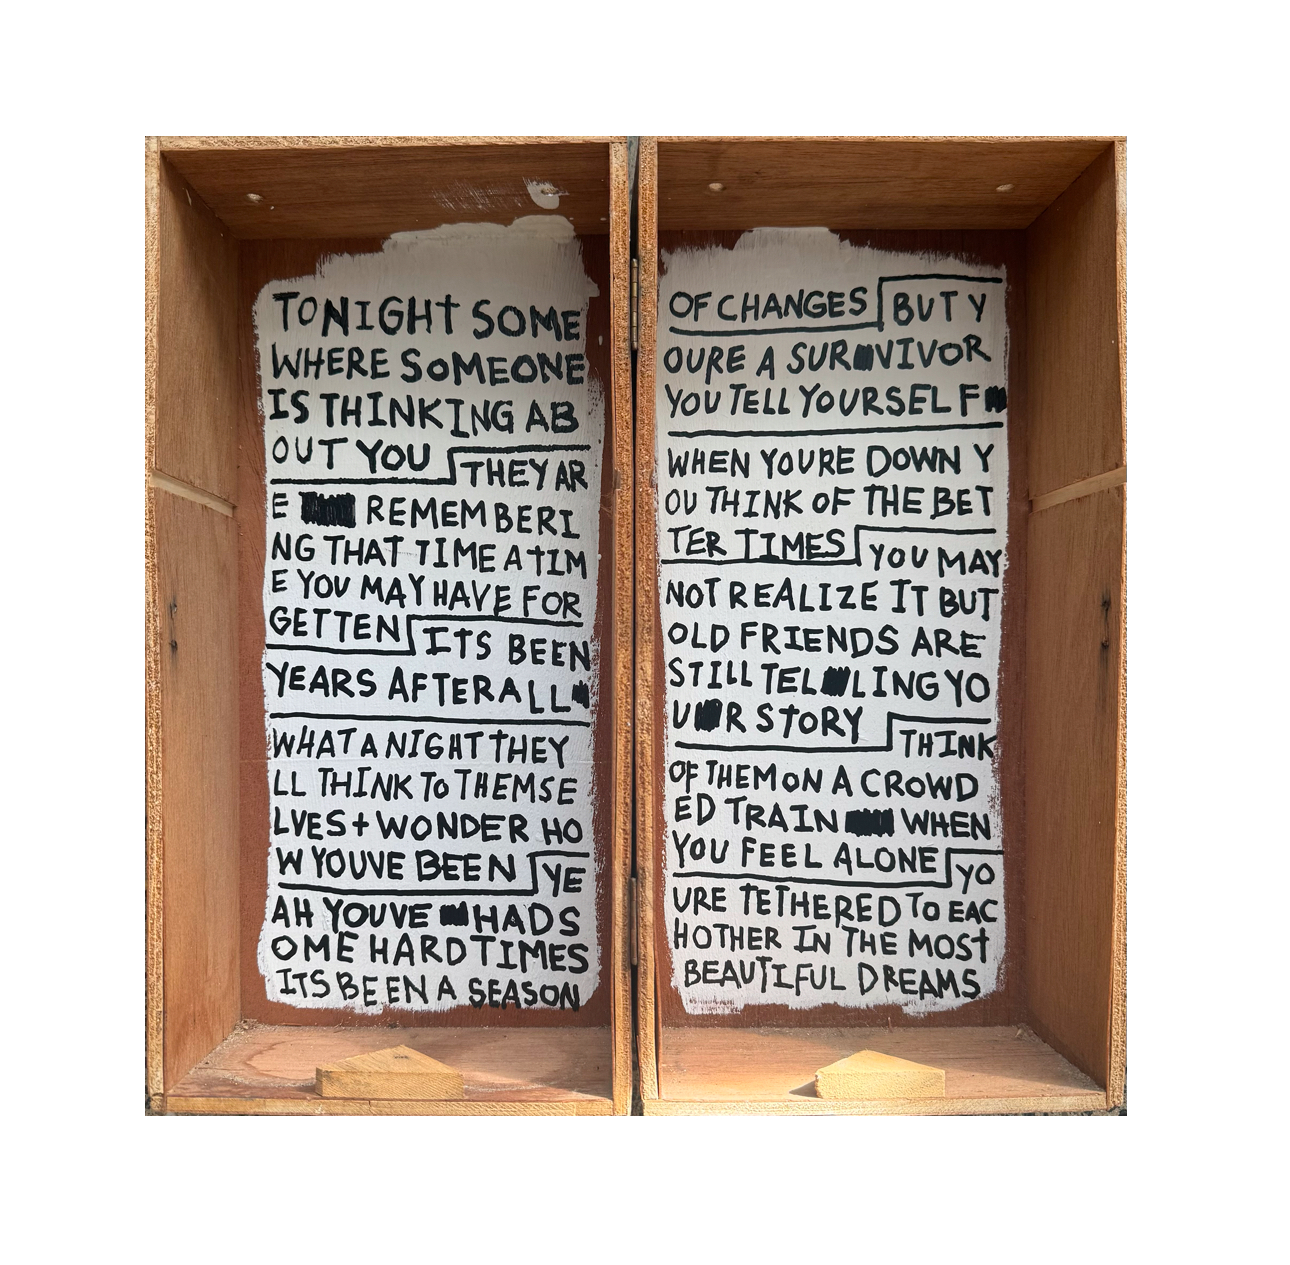 TONIGHT SOME
WHERE SOMEONE
IS THINKING AB
OUT YOU THEY AR
E REMEMBERI
NG THAT TIME A TIM
E YOU MAY HAVE FOR
GETTEN ITS BEEN
YEARS AFTER ALL
WHAT A NIGHT THEY
LL THINK TO THEMSE
LVES + WONDER HO
W YOUVE BEEN YE
AH YOUVE HAD S
OME HARD TIMES
ITS BEEN A SEASON
OF CHANGES BUT Y
OURE A SURVIVOR
YOU TELL YOURSELF
WHEN YOURE DOWN Y
OU THINK OF THE BET
TER TIMES YOU MAY
NOT REALIZE IT BUT
OLD FRIENDS ARE
STILL TELLING YO
UR STORY THINK
OF THEM ON A CROWD
ED TRAIN WHEN
YOU FEEL ALONE YO
URE TETHERED TO EAC
H OTHER IN THE MOST
BEAUTIFUL DREAMS